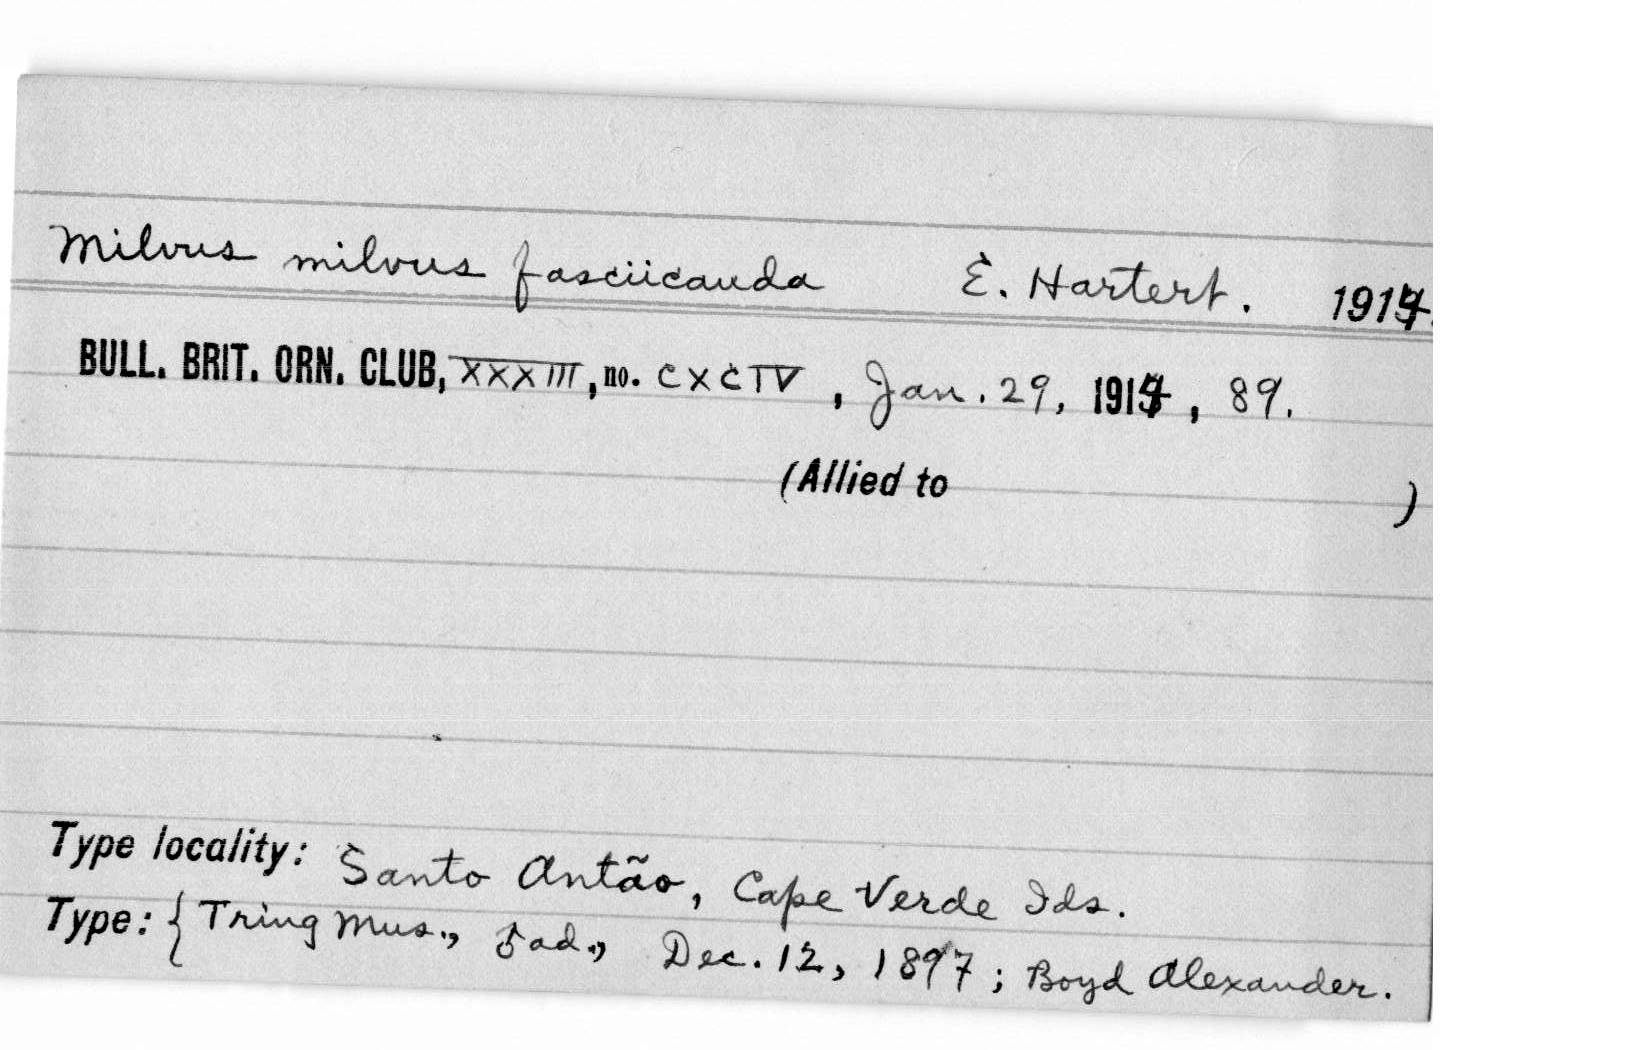 Milvus milvus fasciicauda E. Hartert. 1914.
BULL. BRIT. ORN. CLUB, XXXIII, no. CXCIV, Jan. 29, 1914, 89.
(Allied to )
Type locality: Santo Antão, Cape Verde Ids.
Type: { Tring Mus., ♂ ad., Dec. 12, 1897; Boyd Alexander.